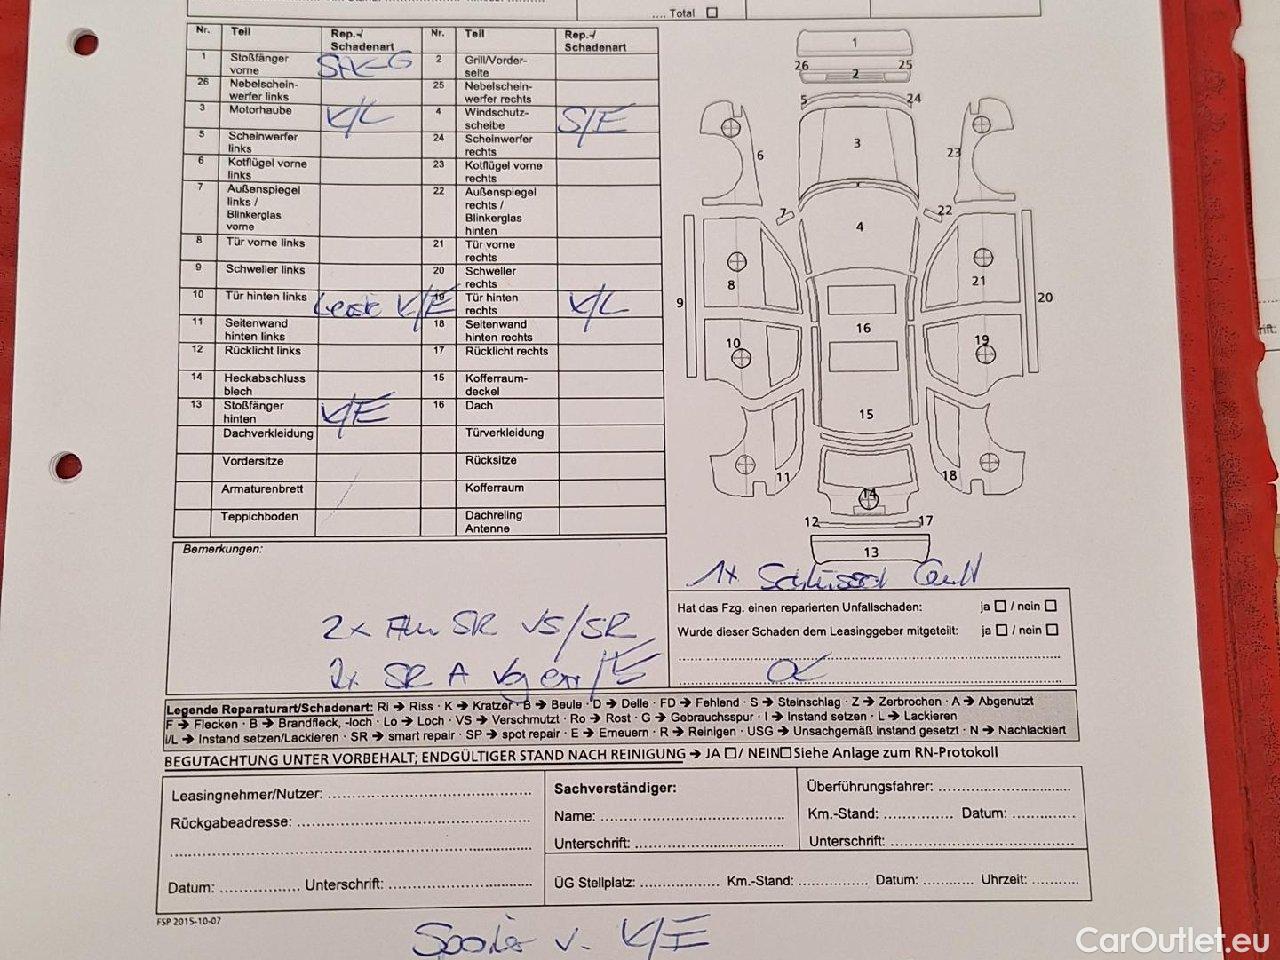 .... Total ☐
Nr. Teil Rep.-/ Schadenart Nr. Teil Rep.-/ Schadenart
1 Stoßfänger vorne 2 Grill/Vorder-seite
26 Nebelschein-werfer links 25 Nebelschein-werfer rechts
3 Motorhaube K/L 4 Windschutz-scheibe S/E
5 Scheinwerfer links 24 Scheinwerfer rechts
6 Kotflügel vorne links 23 Kotflügel vorne rechts
7 Außenspiegel links / Blinkerglas vorne 22 Außenspiegel rechts / Blinkerglas hinten
8 Tür vorne links 21 Tür vorne rechts
9 Schweller links 20 Schweller rechts
10 Tür hinten links K/E 19 Tür hinten rechts K/L
11 Seitenwand hinten links 18 Seitenwand hinten rechts
12 Rücklicht links 17 Rücklicht rechts
14 Heckabschluss blech 15 Kofferraum-deckel
13 Stoßfänger hinten K/E 16 Dach
Dachverkleidung Türverkleidung
Vordersitze Rücksitze
Armaturenbrett Kofferraum
Teppichboden Dachreling Antenne
1
26 25
2
5 24
3
6 23
7 22
4
8 21
9 20
16
10 19
15
11 18
14
12 17
13
Bemerkungen:
2x SR VS/SR
2x SR A
1x
Hat das Fzg. einen reparierten Unfallschaden: ja ☐ / nein ☐
Wurde dieser Schaden dem Leasinggeber mitgeteilt: ja ☐ / nein ☐
Legende Reparaturart/Schadenart: Ri → Riss · K → Kratzer · B → Beule · D → Delle · FD → Fehlend · S → Steinschlag · Z → Zerbrochen · A → Abgenutzt
F → Flecken · B → Brandfleck, -loch · Lo → Loch · VS → Verschmutzt · Ro → Rost · G → Gebrauchsspur · I → Instand setzen · L → Lackieren
I/L → Instand setzen/Lackieren · SR → smart repair · SP → spot repair · E → Erneuern · R → Reinigen · USG → Unsachgemäß instand gesetzt · N → Nachlackiert
BEGUTACHTUNG UNTER VORBEHALT; ENDGÜLTIGER STAND NACH REINIGUNG → JA ☐ / NEIN ☐ Siehe Anlage zum RN-Protokoll
Leasingnehmer/Nutzer: ....................
Rückgabeadresse: ....................
Datum: .......... Unterschrift: ....................
Sachverständiger:
Name: ....................
Unterschrift: ....................
Überführungsfahrer: ....................
Km.-Stand: .......... Datum: ..........
Unterschrift: ....................
ÜG Stellplatz: .......... Km.-Stand: .......... Datum: .......... Uhrzeit: ..........
FSP 2015-10-07
Spoiler v.
CarOutlet.eu